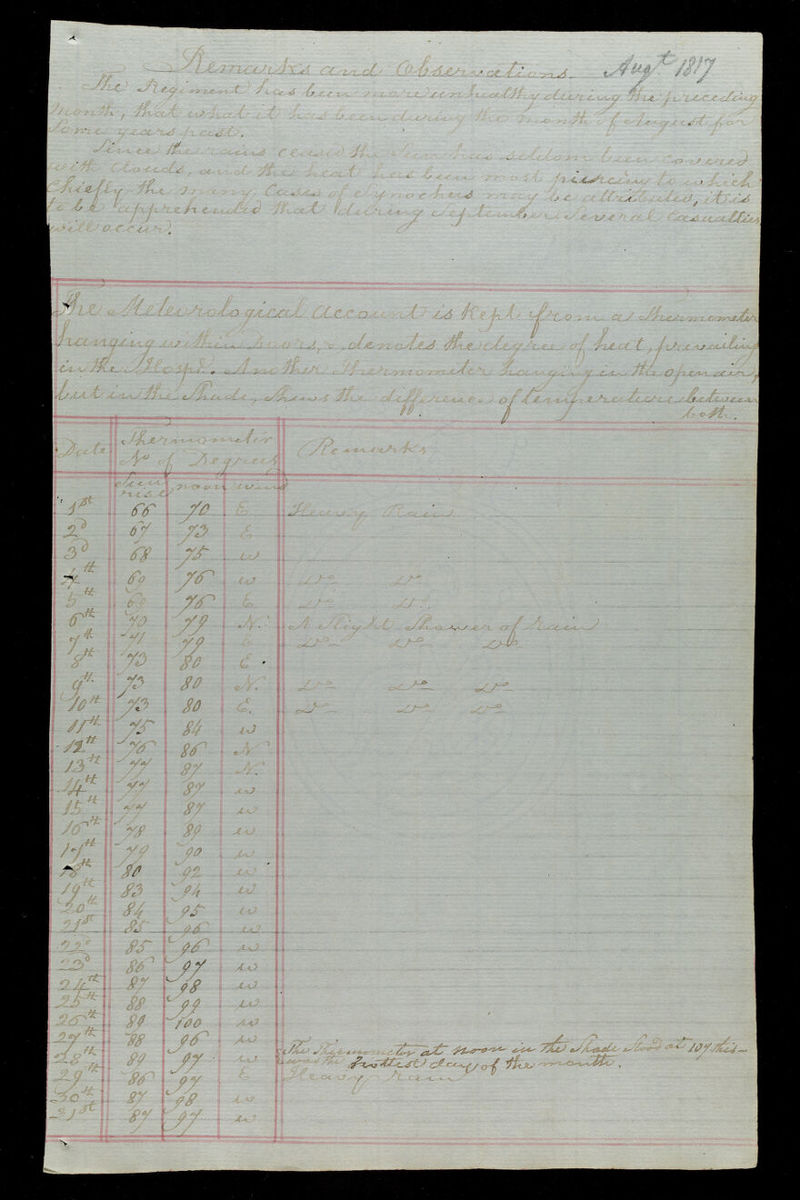 Remarks and Observations. Augt. 1817
The Regiment has been more unhealthy during the preceding
Month, that what it has been during the month of August for
Some years past.
Since the rains ceased the Sun has seldom been covered
with Clouds, and the heat has been most piercing to which
Chiefly the many Cases of Synochus may be attributed, it is
to be apprehended that during September Several Casualties
will occur.
The Meteorological Account is kept from a Thermometer
hanging within Doors, & denotes the degree of heat, prevailing
in the Hospl. Another Thermometer hanging in the open air,
but in the Shade, Shews the difference of temperature between
both.
Date Thermometer Remarks
No of Degrees
Sun rise noon wind
1st 66 70 E Heavy Rain
2d 67 73 E
3d 68 75 w
4th 69 76 w Do Do
5th 69 76 E Do Do
6th 70 79 N. A Slight Shower of rain
7th 71 79 E Do Do Do
8th 73 80 E.
9th 73 80 N. Do Do Do
10th 73 80 E. Do Do Do
11th 75 84 w
12th 76 86 N
13th 77 87 N.
14th 77 87 w
15th 77 87 w
16th 78 89 w
17th 79 90 w
18th 80 92 w
19th 83 94 w
20th 84 95 w
21st 85 96 w
22d 85 96 w
23d 86 97 w
24th 87 98 w
25th 88 99 w
26th 89 100 w
27th 88 96 w
28th 89 97 w The Thermometer at noon in the Shade Stood at 107 this
was the hottest day of the month.
29th 86 97 E Heavy rain
30th 87 98 w
31st 87 97 w